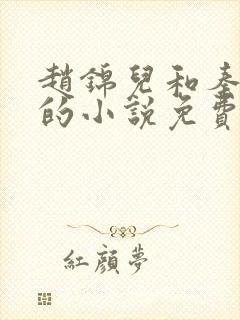 趙錦兒和秦
的小說免費
紅顏夢